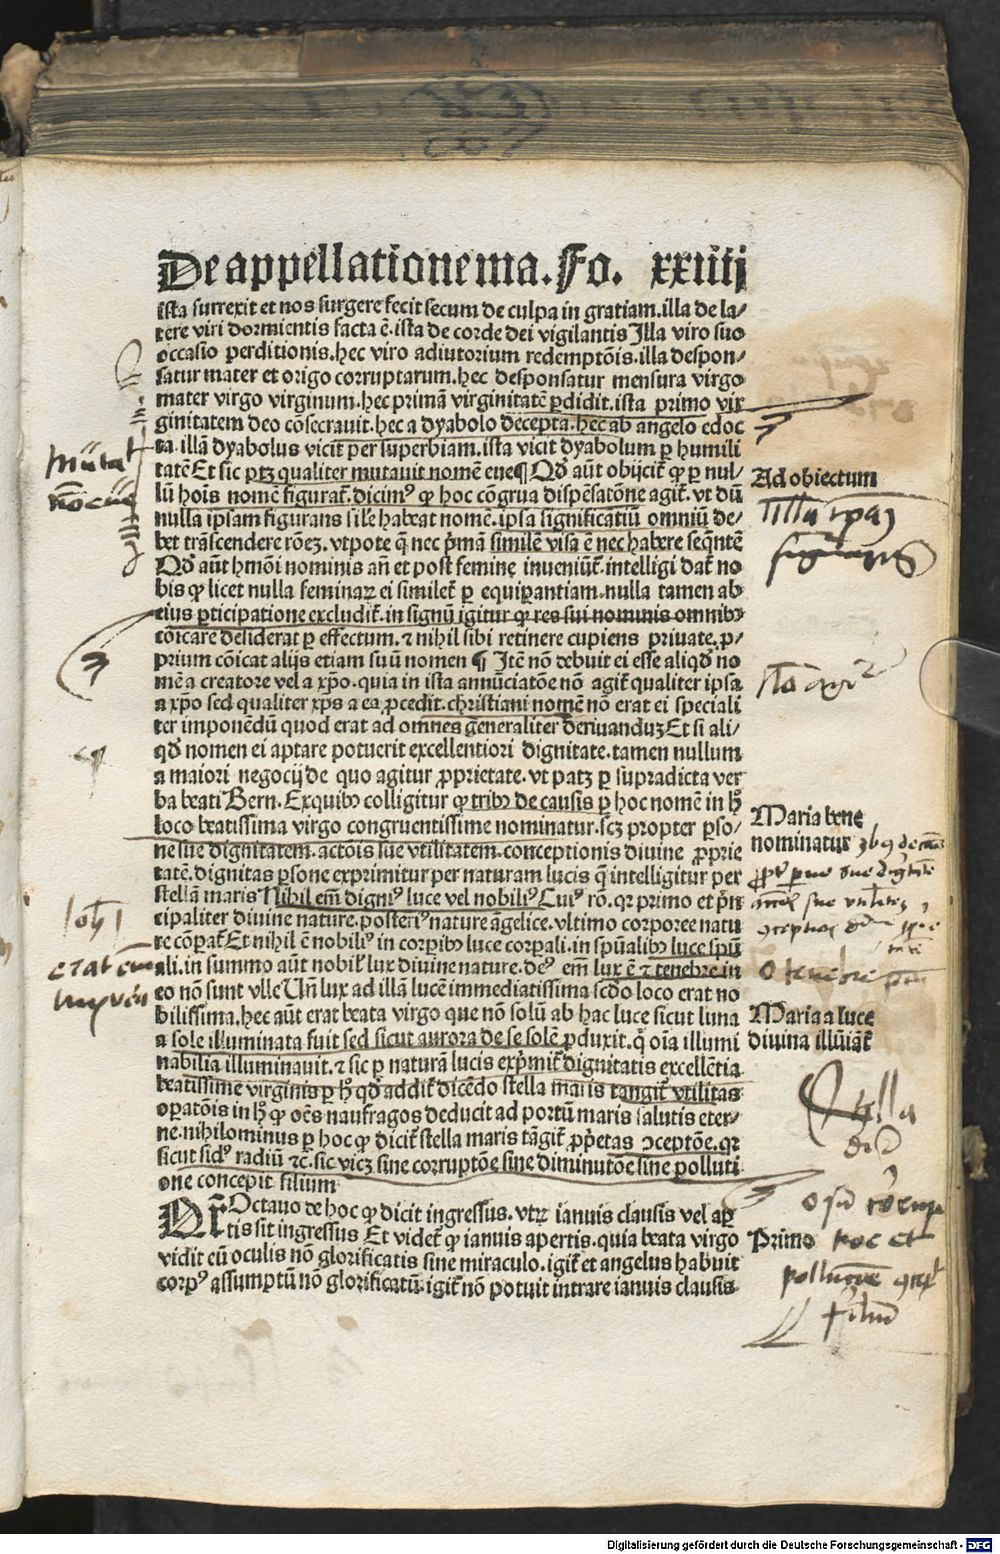 De appellatione ma. Fo. xxiiij
ista surrexit et nos surgere fecit secum de culpa in gratiam. illa de la-
tere viri dormientis facta ē. ista de corde dei vigilantis Illa viro suo
occasio perditionis. hec viro adiutorium redemptōis. illa despon-
satur mater et origo corruptarum. hec desponsatur mensura virgo
mater virgo virginum. hec primā virginitatē ꝑdidit. ista primo vir
ginitatem deo cōsecrauit. hec a dyabolo decepta. hec ab angelo edoc
ta. illā dyabolus vicit per superbiam. ista vicit dyabolum ꝑ humili
tatē Et sic ptꝫ qualiter mutauit nomē eue¶ Qd̄ aūt obijcit̄ ꝙ ꝑ nul-
lū hoīs nomē figurat̄. dicimꝰ ꝙ hoc cōgrua dispēsatōne agit̄. vt dū
nulla ipsam figurans sil̓e habeat nomē. ipsa significatiū omniū de-
bet trāscendere rōeꝫ. vtpote q̄ nec pͥmā similē visa ē nec habere seq̄ntē
Qd̄ aūt hmōi nominis an̄ et post femine inueniūt̄. intelligi dat̄ no
bis ꝙ licet nulla feminaꝝ ei similet̄ ꝑ equiꝑantiam. nulla tamen ab
eius ꝑticipatione excludit̄. in signū igitur ꝙ res sui nominis omnibꝫ
cōicare desiderat ꝑ effectum. ⁊ nihil sibi retinere cupiens priuate. ꝓ-
prium cōicat alijs etiam suū nomen ¶ Itē nō debuit ei esse aliqd̄ no
mē a creatore vel a xp̄o. quia in ista annūciatōe nō agit̄ qualiter ipsa
a xp̄o sed qualiter xp̄s a ea ꝓcedit. christiani nomē nō erat ei speciali
ter imponēdū quod erat ad omnes generaliter deriuanduꝫ Et si ali-
qd̄ nomen ei aptare potuerit excellentiori dignitate. tamen nullum
a maiori negocij de quo agitur ꝓprietate. vt patꝫ ꝑ supradicta ver
ba beati Bern. Exquibꝫ colligitur ꝙ tribꝫ de causis ꝑ hoc nomē in hͦ
loco beatissima virgo congruentissime nominatur. scꝫ propter ꝑso-
ne sue dignitatem. actōis sue vtilitatem. conceptionis diuine ꝓprie
tatē. dignitas ꝑsone exprimitur per naturam lucis q̄ intelligitur per
stellā maris Nihil em̄ digniꝰ luce vel nobiliꝰ Cuiꝰ rō. qꝛ primo et pͥn
cipaliter diuine nature. posteriꝰ nature āgelice. vltimo corporee natu
re cōꝑat̄ Et nihil ē nobiliꝰ in corꝑibꝫ luce corꝑali. in spūalibꝫ luce spū
ali. in summo aūt nobil̓ lux diuine nature. deꝰ em̄ lux ē ⁊ tenebre in
eo nō sunt vlle Un̄ lux ad illā lucē immediatissima scd̄o loco erat no
bilissima. hec aūt erat beata virgo que nō solū ab hac luce sicut luna
a sole illuminata fuit sed sicut aurora de se solē ꝓduxit. q̄ oīa illumi
nabilia illuminauit. ⁊ sic ꝑ naturā lucis expͥmit̄ dignitatis excellētia
beatissime virginis ꝑ hͦ qd̄ addit̄ dicēdo stella maris tangit̄ vtilitas
oꝑatōis in hͦ ꝙ oēs naufragos deducit ad portū maris salutis eter-
ne. nihilominus ꝑ hoc ꝙ dicit̄ stella maris tāgit̄ ꝓpͥetas ↄceptōe. qꝛ
sicut sidꝰ radiū ⁊c̄. sic vicꝫ sine corruptōe sine diminutōe sine polluti
one concepit filium
Octauo de hoc ꝙ dicit ingressus. vtꝝ ianuis clausis vel aꝑ
tis sit ingressus Et videt̄ ꝙ ianuis apertis. quia beata virgo
vidit eū oculis nō glorificatis sine miraculo. igit̄ et angelus habuit
corpꝰ assumptū nō glorificatū. igit̄ nō potuit intrare ianuis clausis
Ad obiectum
Maria bene
nominatur
o tenebre
Maria a luce
diuina illūiāt̄
Primo
Digitalisierung gefördert durch die Deutsche Forschungsgemeinschaft - DFG